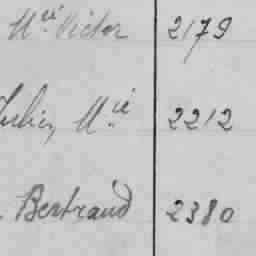 M.ie Victor 2179
Julien, M.ie 2212
Bertrand 2380